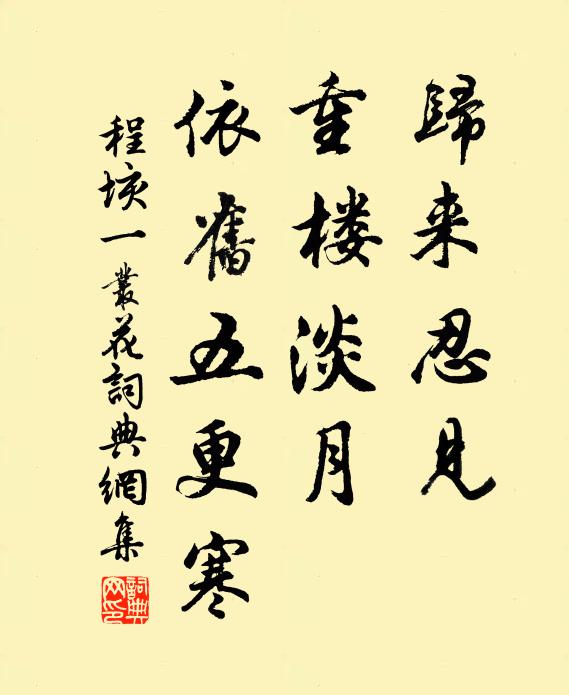 歸来忍見
重楼淡月
依舊五更寒
程垓一叢花詞典網集
詞典网印